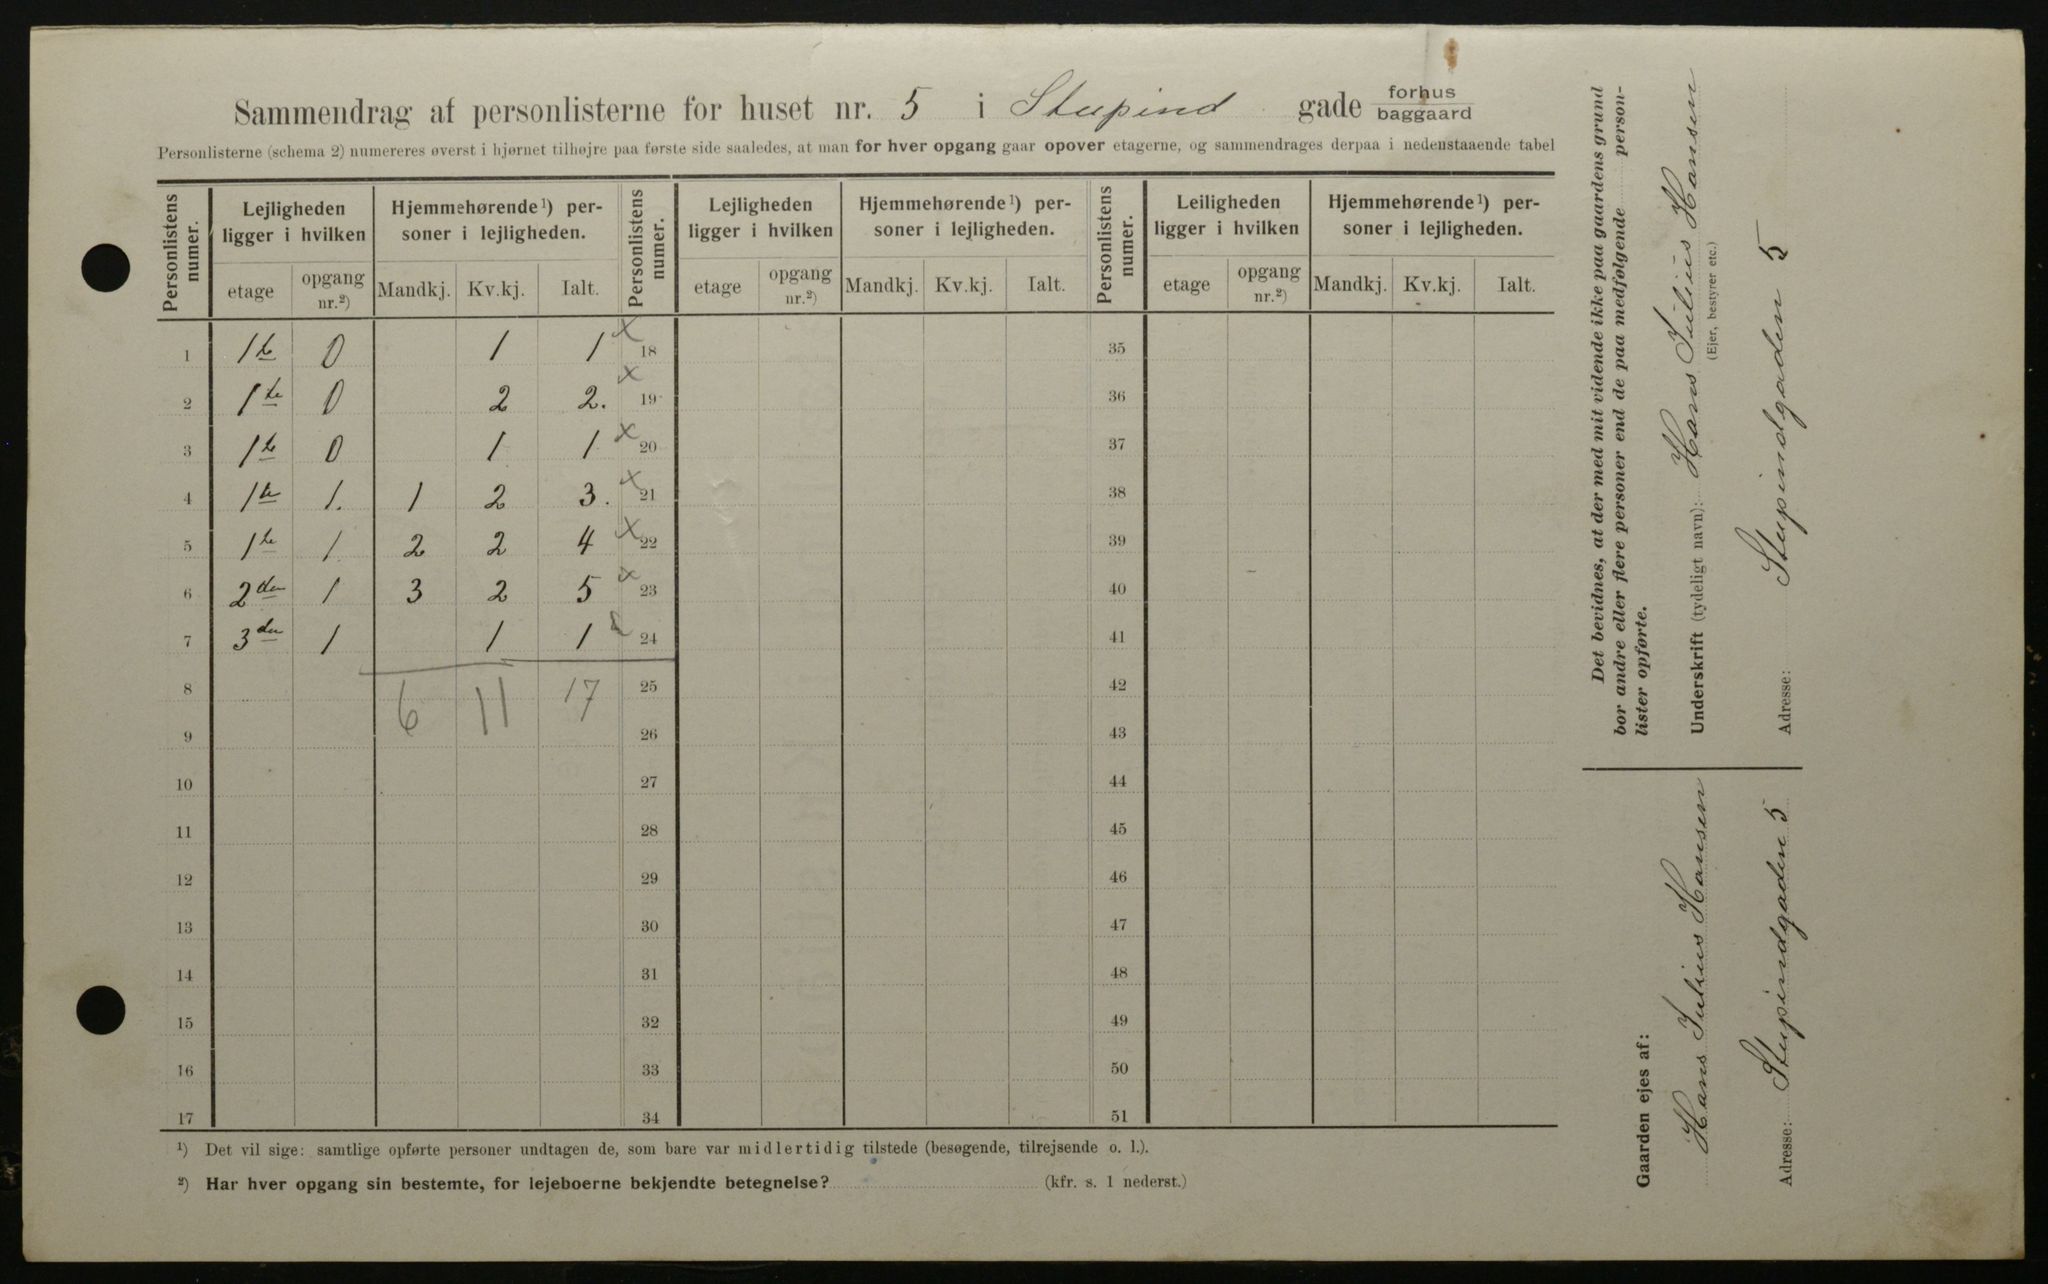 Sammendrag af personlisterne for huset nr. 5 i Stupind gade forhus baggaard
Personlisterne (schema 2) numereres øverst i hjørnet tilhøjre paa første side saaledes, at man for hver opgang gaar opover etagerne, og sammendrages derpaa i nedenstaaende tabel
Personlistens numer. Lejligheden ligger i hvilken Hjemmehørende ¹) personer i lejligheden. Personlistens numer. Lejligheden ligger i hvilken Hjemmehørende ¹) personer i lejligheden. Personlistens numer. Leiligheden ligger i hvilken Hjemmehørende ¹) personer i lejligheden.
etage opgang nr.²) Mandkj. Kv.kj. Ialt. etage opgang nr.²) Mandkj. Kv.kj. Ialt. etage opgang nr.²) Mandkj. Kv.kj. Ialt.
1 1te 0 1 1 x 18 35
2 1te 0 2 2. x 19 36
3 1te 0 1 1 x 20 37
4 1te 1. 1 2 3. x 21 38
5 1te 1 2 2 4 x 22 39
6 2den 1 3 2 5 x 23 40
7 3die 1 1 1 24 41
8 6 11 17 25 42
9 26 43
10 27 44
11 28 45
12 29 46
13 30 47
14 31 48
15 32 49
16 33 50
17 34 51
¹) Det vil sige: samtlige opførte personer undtagen de, som bare var midlertidig tilstede (besøgende, tilrejsende o. l.).
²) Har hver opgang sin bestemte, for lejeboerne bekjendte betegnelse? (kfr. s. 1 nederst.)
Det bevidnes, at der med mit vidende ikke paa gaardens grund
bor andre eller flere personer end de paa medfølgende person-
lister opførte.
Underskrift (tydeligt navn): Hans Julius Hansen
(Ejer, bestyrer etc.)
Adresse: Stupindgaden 5
Gaarden ejes af:
Hans Julius Hansen
Adresse: Stupindgaden 5